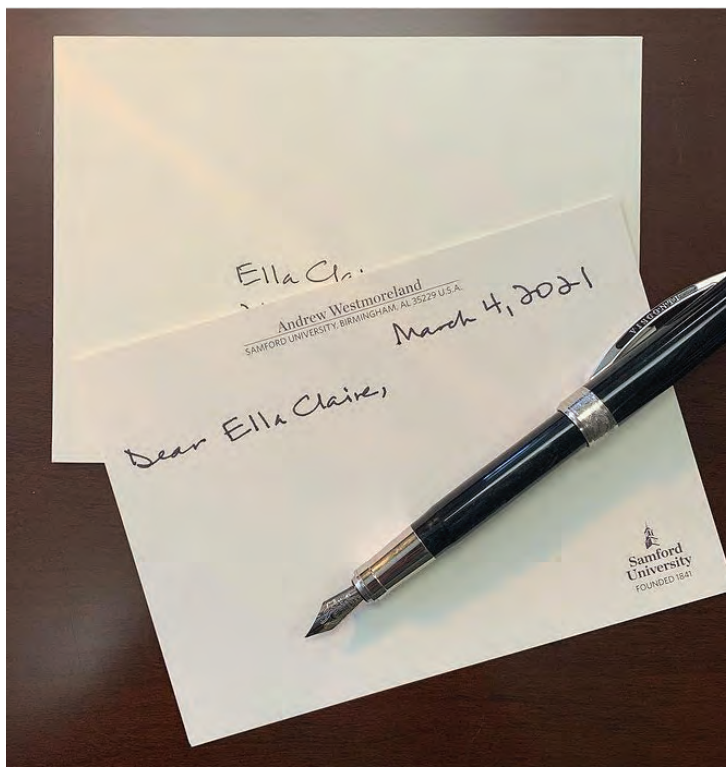 Ella
Andrew Westmoreland
SAMFORD UNIVERSITY, BIRMINGHAM, AL 35229 U.S.A.
March 4, 2021
Dear Ella Claire,
VISCONTI
Samford
University
FOUNDED 1841